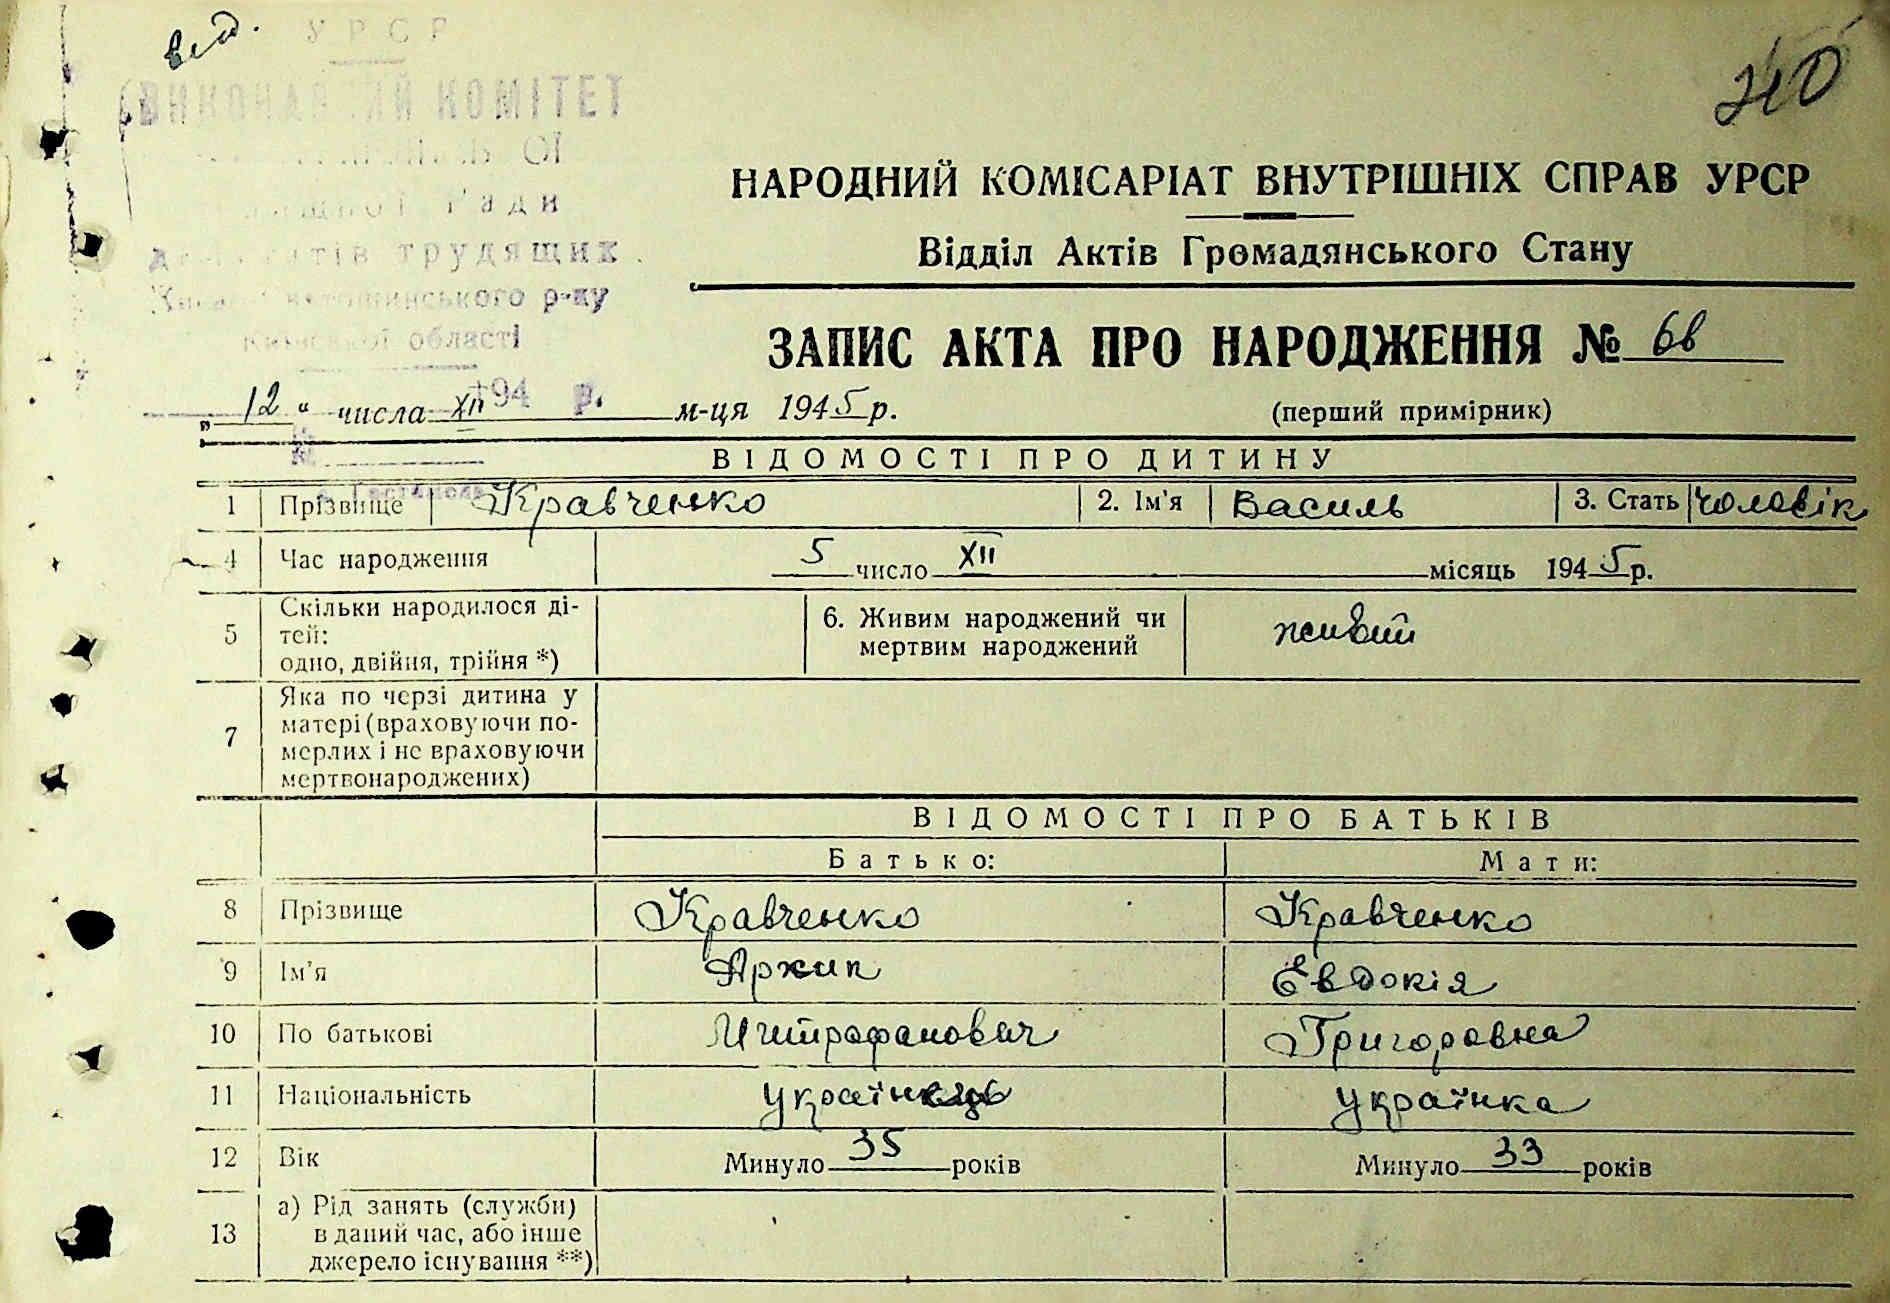 вид.
210
УРСР
ВИКОНАВЧИЙ КОМІТЕТ
Ради
депутатів трудящих
Києво-Святошинського р-ну
Київської області
194 р.
НАРОДНИЙ КОМІСАРІАТ ВНУТРІШНІХ СПРАВ УРСР
Відділ Актів Громадянського Стану
ЗАПИС АКТА ПРО НАРОДЖЕННЯ № 68
„ 12 “ числа XII м-ця 1945 р.
(перший примірник)
ВІДОМОСТІ ПРО ДИТИНУ
1 Прізвище Кравченко 2. Ім'я Василь 3. Стать чоловік
4 Час народження 5 число XII місяць 1945 р.
5 Скільки народилося ді-
тей:
одно, двійня, трійня *)
6. Живим народжений чи
мертвим народжений
живий
7 Яка по черзі дитина у
матері (враховуючи по-
мерлих і не враховуючи
мертвонароджених)
ВІДОМОСТІ ПРО БАТЬКІВ
Батько: Мати:
8 Прізвище Кравченко Кравченко
9 Ім'я Архип Евдокія
10 По батькові Митрофанович Григоровна
11 Національність українець українка
12 Вік Минуло 35 років Минуло 33 років
13 а) Рід занять (служби)
в даний час, або інше
джерело існування **)